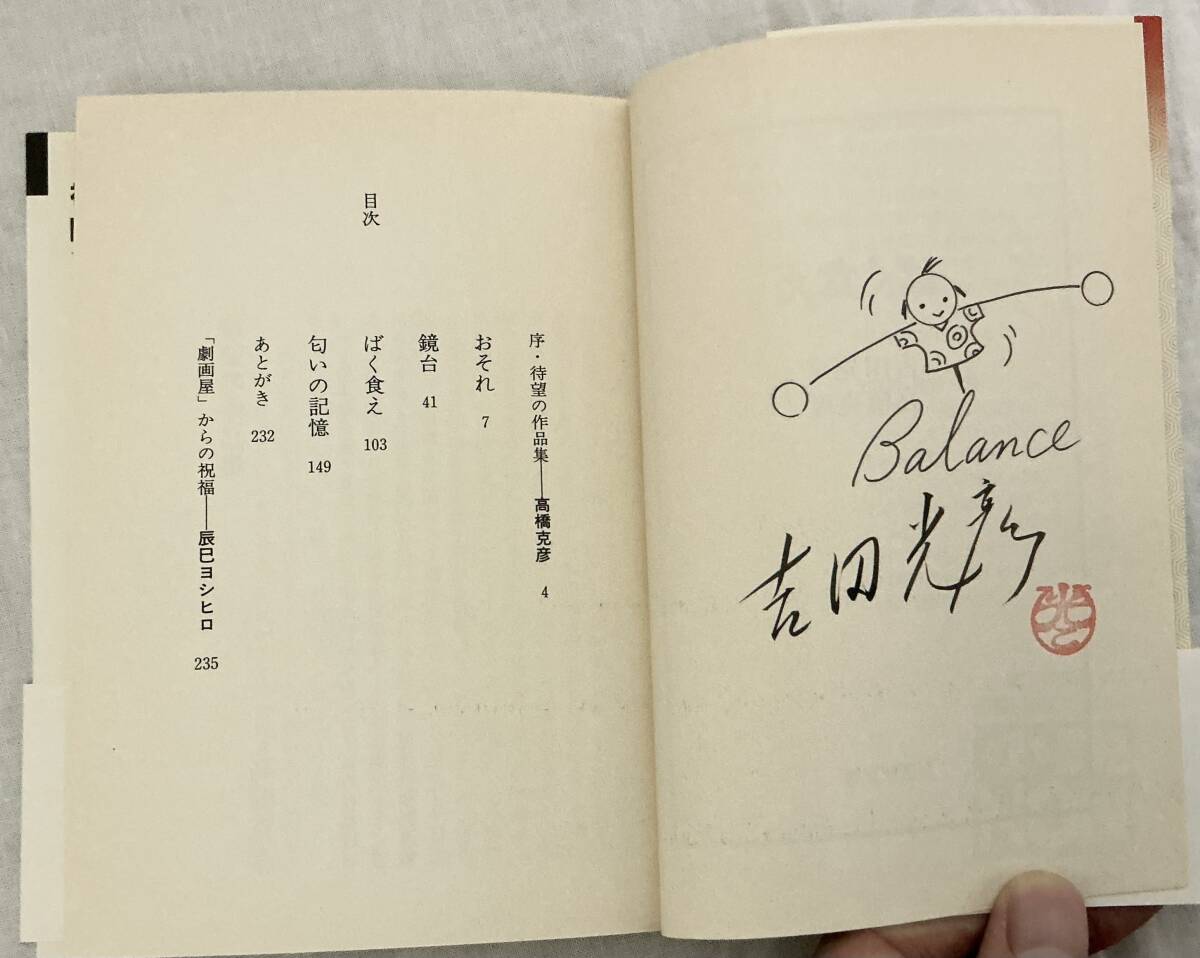 Balance
吉田光彦
目次
序・待望の作品集――高橋克彦 4
おそれ 7
鏡台 41
ばく食え 103
匂いの記憶 149
あとがき 232
「劇画屋」からの祝福――辰巳ヨシヒロ 235